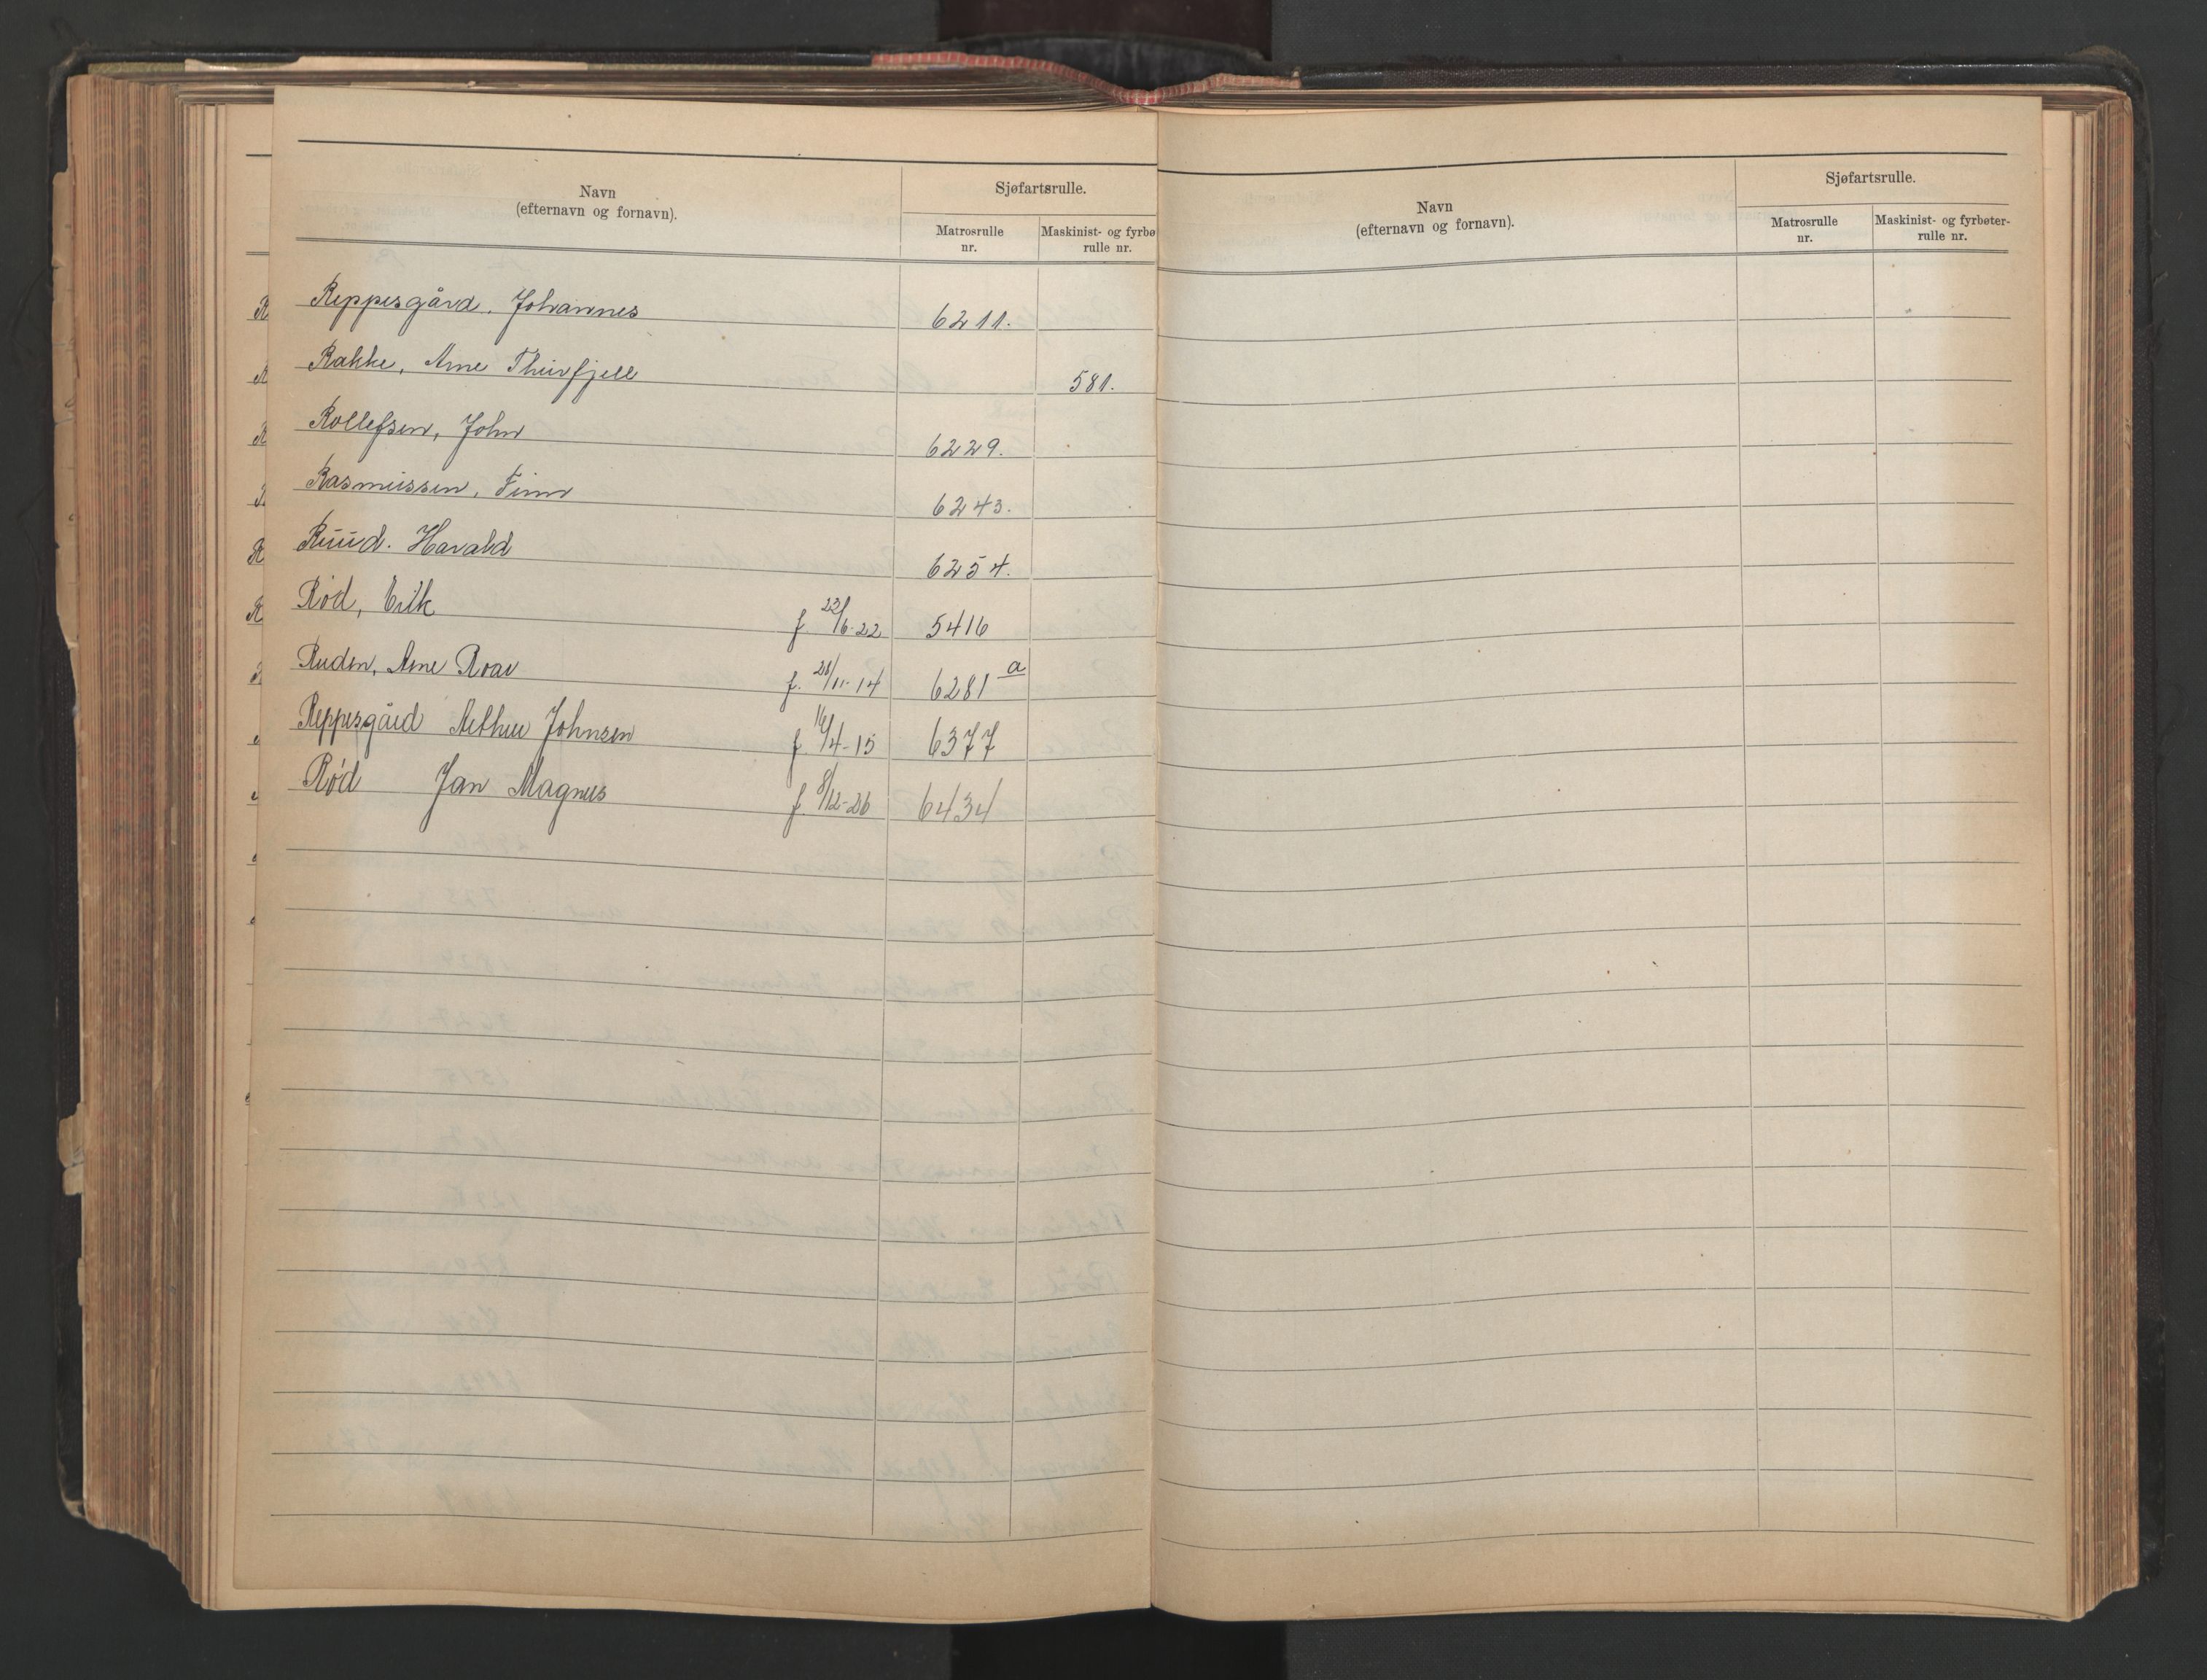 Navn
(efternavn og fornavn).
Sjøfartsrulle.
Matrosrulle
nr.
Maskinist- og fyrbø
rulle nr.
Reppesgård, Johannes 6211.
Rakke, Arne Thurfjell 581.
Rollefsen, John 6229.
Rasmussen, Finn 6243.
Ruud. Harald 6254.
Rød, Erik f. 23/6-22 5416
Ruden, Arne Roar f. 28/11-14 6281 a
Reppesgård Arthur Johnsen f 16/4-15 6377
Rød Jan Magnus f. 8/12-26 6434
Navn
(efternavn og fornavn).
Sjøfartsrulle.
Matrosrulle
nr.
Maskinist- og fyrbøter-
rulle nr.